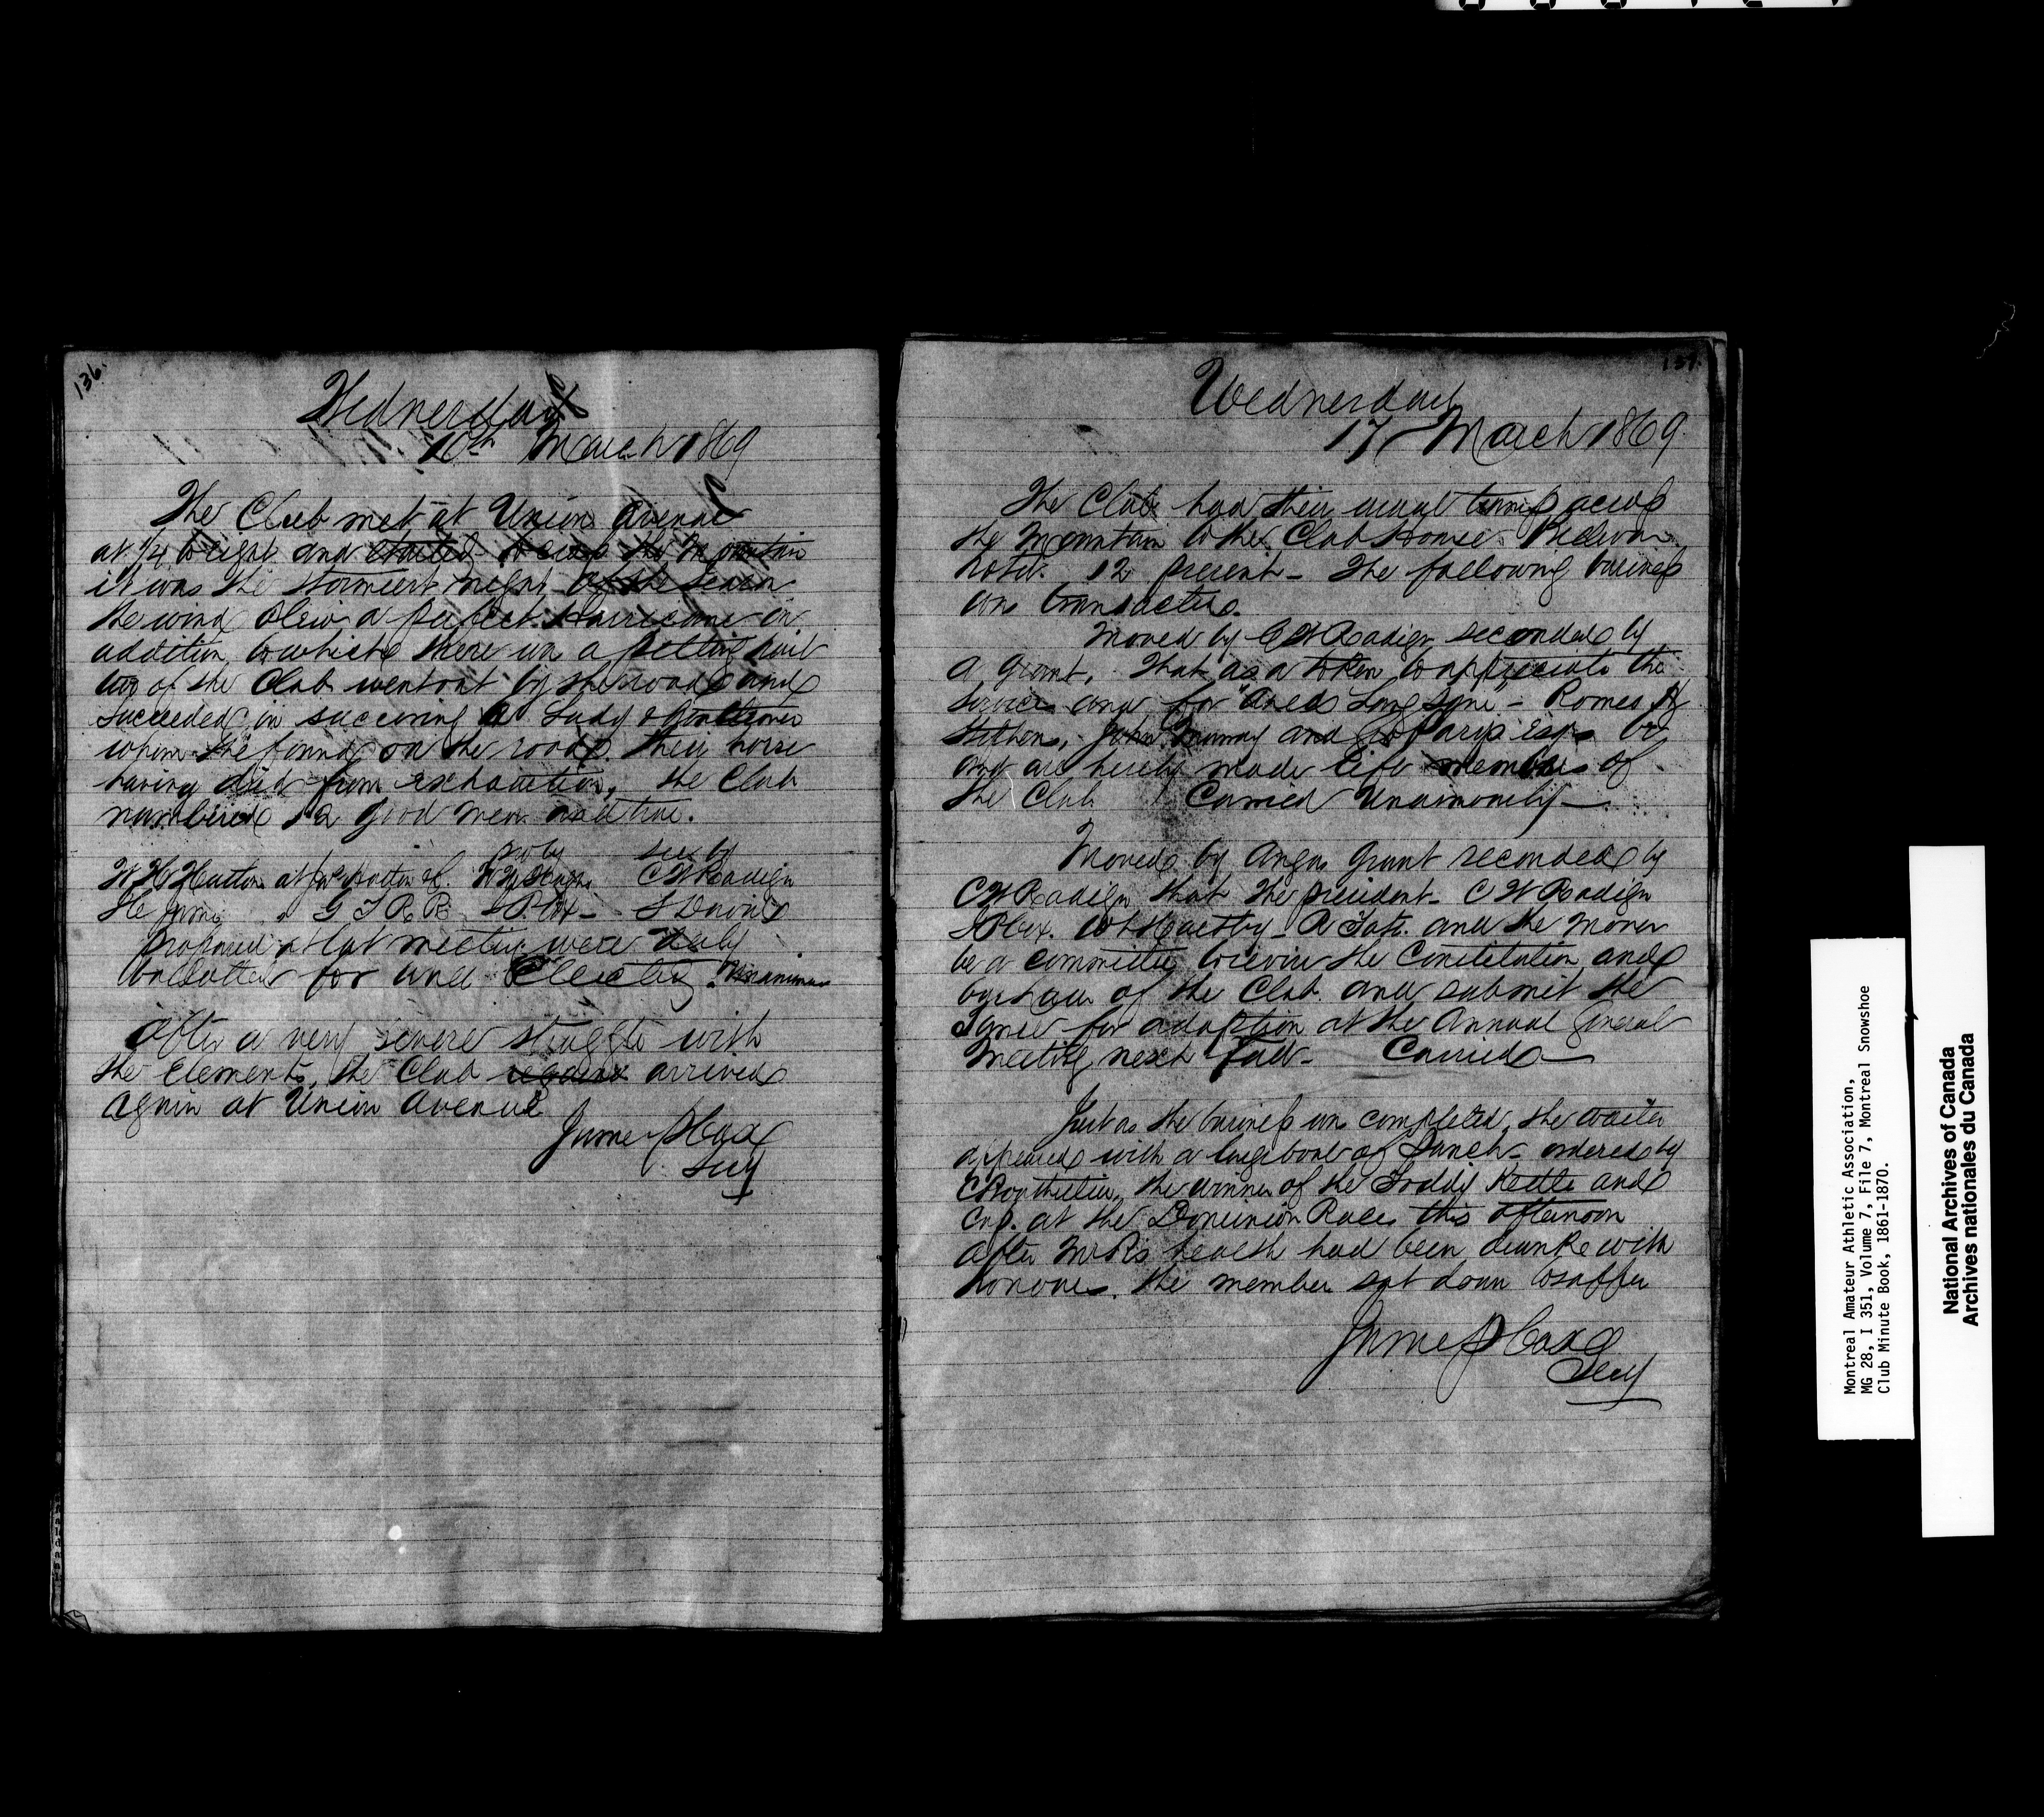 136.
Wednesday
10th March 1869
The Club met at Union Avenue
at 1/4 to eight and started across the Mountain
it was the stormiest night of the season
the wind blew a perfect Hurricane in
addition to which there was a pelting hail
two of the Club went out by the road and
succeeded in succouring a Lady & Gentleman
whom the found on the road. their horse
having died from exhaustion, the Club
numbered 12 good men and true.
pro by sec by
W H Hutton at Jas Hutton & C W Radiger
G T R R J P Cox
proposed at last meeting were duly
balloted for and Elected. Unanimous
After a very severe struggle with
the Elements, the Club arrived
again at Union Avenue
James P Cox
Secy
137.
Wednesday
17 March 1869.
The Club had their usual tramp across
the Mountain to the Club House
Hotel. 12 present - The following business
was transacted.
Moved by C W Radiger seconded by
A Grant, that as a token to appreciate the
services and for "Auld Lang Syne" - Romeo H
Stephens, John Murray and Parys Esqrs be
and are hereby made Life members of
the Club Carried Unanimously
Moved by Angus Grant seconded by
C W Radiger that the president - C W Radiger
J P Cox. - R Tate. and the Mover
be a committee to revise the Constitution and
bye Laws of the Club and submit the
same for adaption at the Annual General
Meeting next Fall - Carried
Just as the business was completed, the waiter
appeared with a large bowl of Punch - ordered by
C Rowthillier, the winner of the Toddy Kettle and
Cup. at the Dominion Races this afternoon
after Mr R's health had been drunk with
honours. the member sat down to supper
James P Cox
Secy
Montreal Amateur Athletic Association,
MG 28, I 351, Volume 7, File 7, Montreal Snowshoe
Club Minute Book, 1861-1870.
National Archives of Canada
Archives nationales du Canada